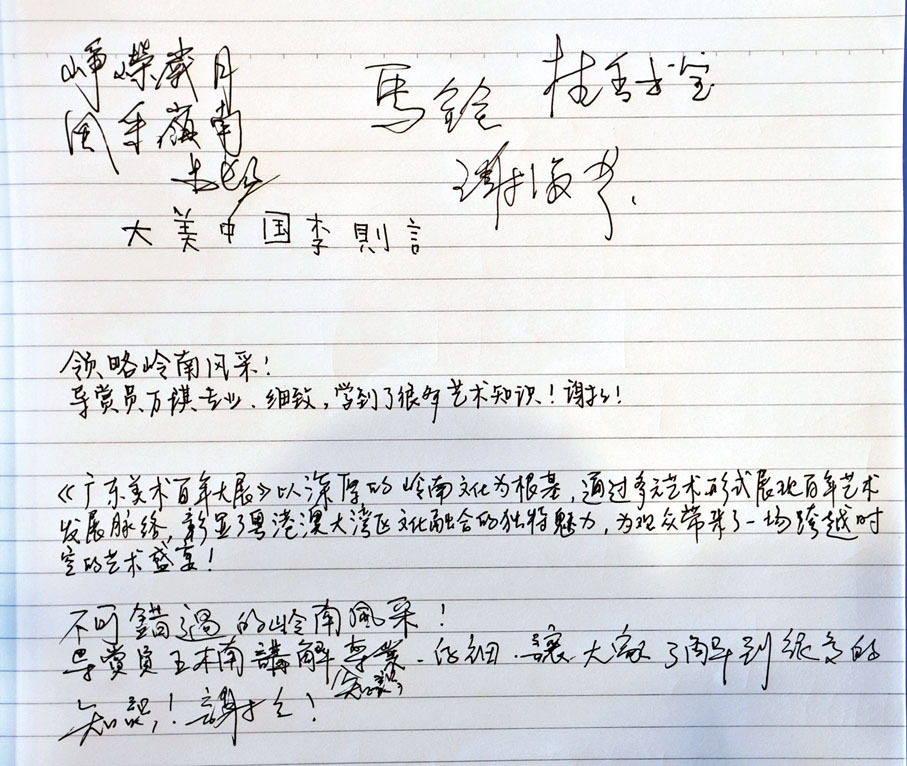 崢嶸歲月
風采嶺南
馬鈴
大美中国李則言
领略岭南风采！
导赏员万琪专业、细致，学到了很多艺术知识！谢谢！
《广东美术百年大展》以深厚的岭南文化为根基，通过多元艺术形式展现百年艺术
发展脉络，彰显了粤港澳大湾区文化融合的独特魅力，为观众带来了一场跨越时
空的艺术盛宴！
不可錯過的岭南風采！
导赏員王木南講解專業、仔細，讓大家了解到很多的
知識！謝謝！